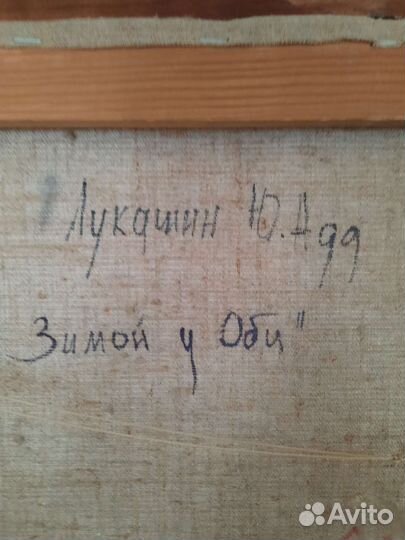 Лукашин Ю.А 99
Зимой у Оби"
Avito